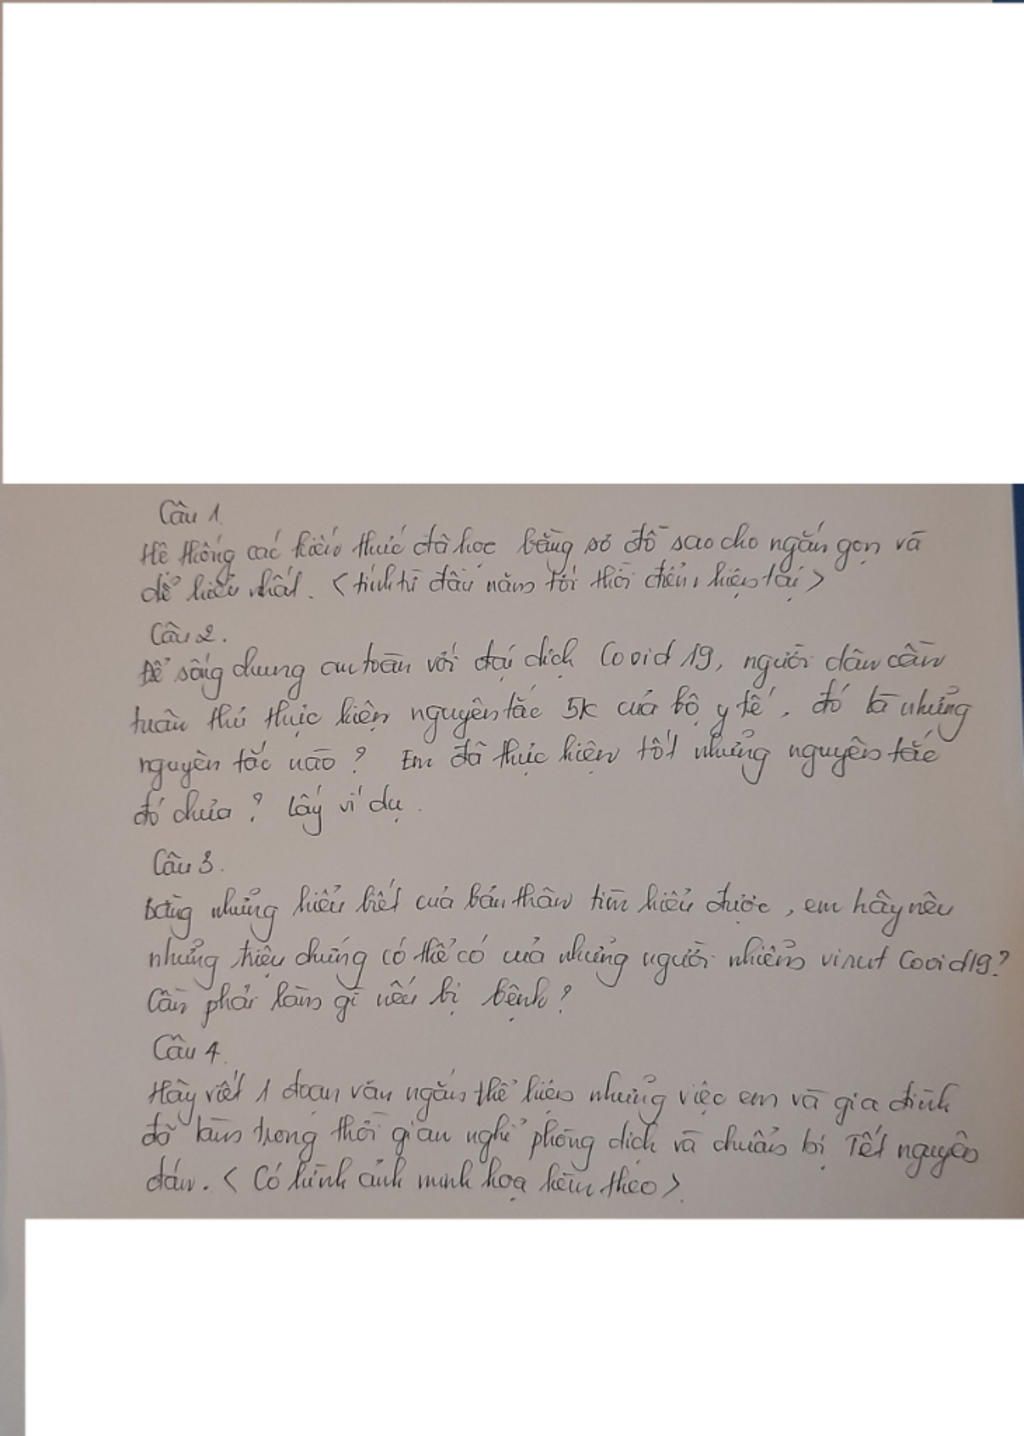 Câu 1.
Hệ thống các kiến thức đã học bằng sơ đồ sao cho ngắn gọn và
dễ hiểu nhất. <tính từ đầu năm tới thời điểm hiện tại>
Câu 2.
Để sống chung an toàn với đại dịch Covid 19, người dân cần
tuân thủ thực hiện nguyên tắc 5k của bộ y tế, đó là những
nguyên tắc nào? Em đã thực hiện tốt những nguyên tắc
đó chưa? Lấy ví dụ.
Câu 3.
Bằng những hiểu biết của bản thân tìm hiểu được, em hãy nêu
những triệu chứng có thể có của những người nhiễm virut Covid19?
Cần phải làm gì nếu bị bệnh?
Câu 4.
Hãy viết 1 đoạn văn ngắn thể hiện những việc em và gia đình
đã làm trong thời gian nghỉ phòng dịch và chuẩn bị Tết nguyên
đán. <Có hình ảnh minh hoạ kèm theo>.